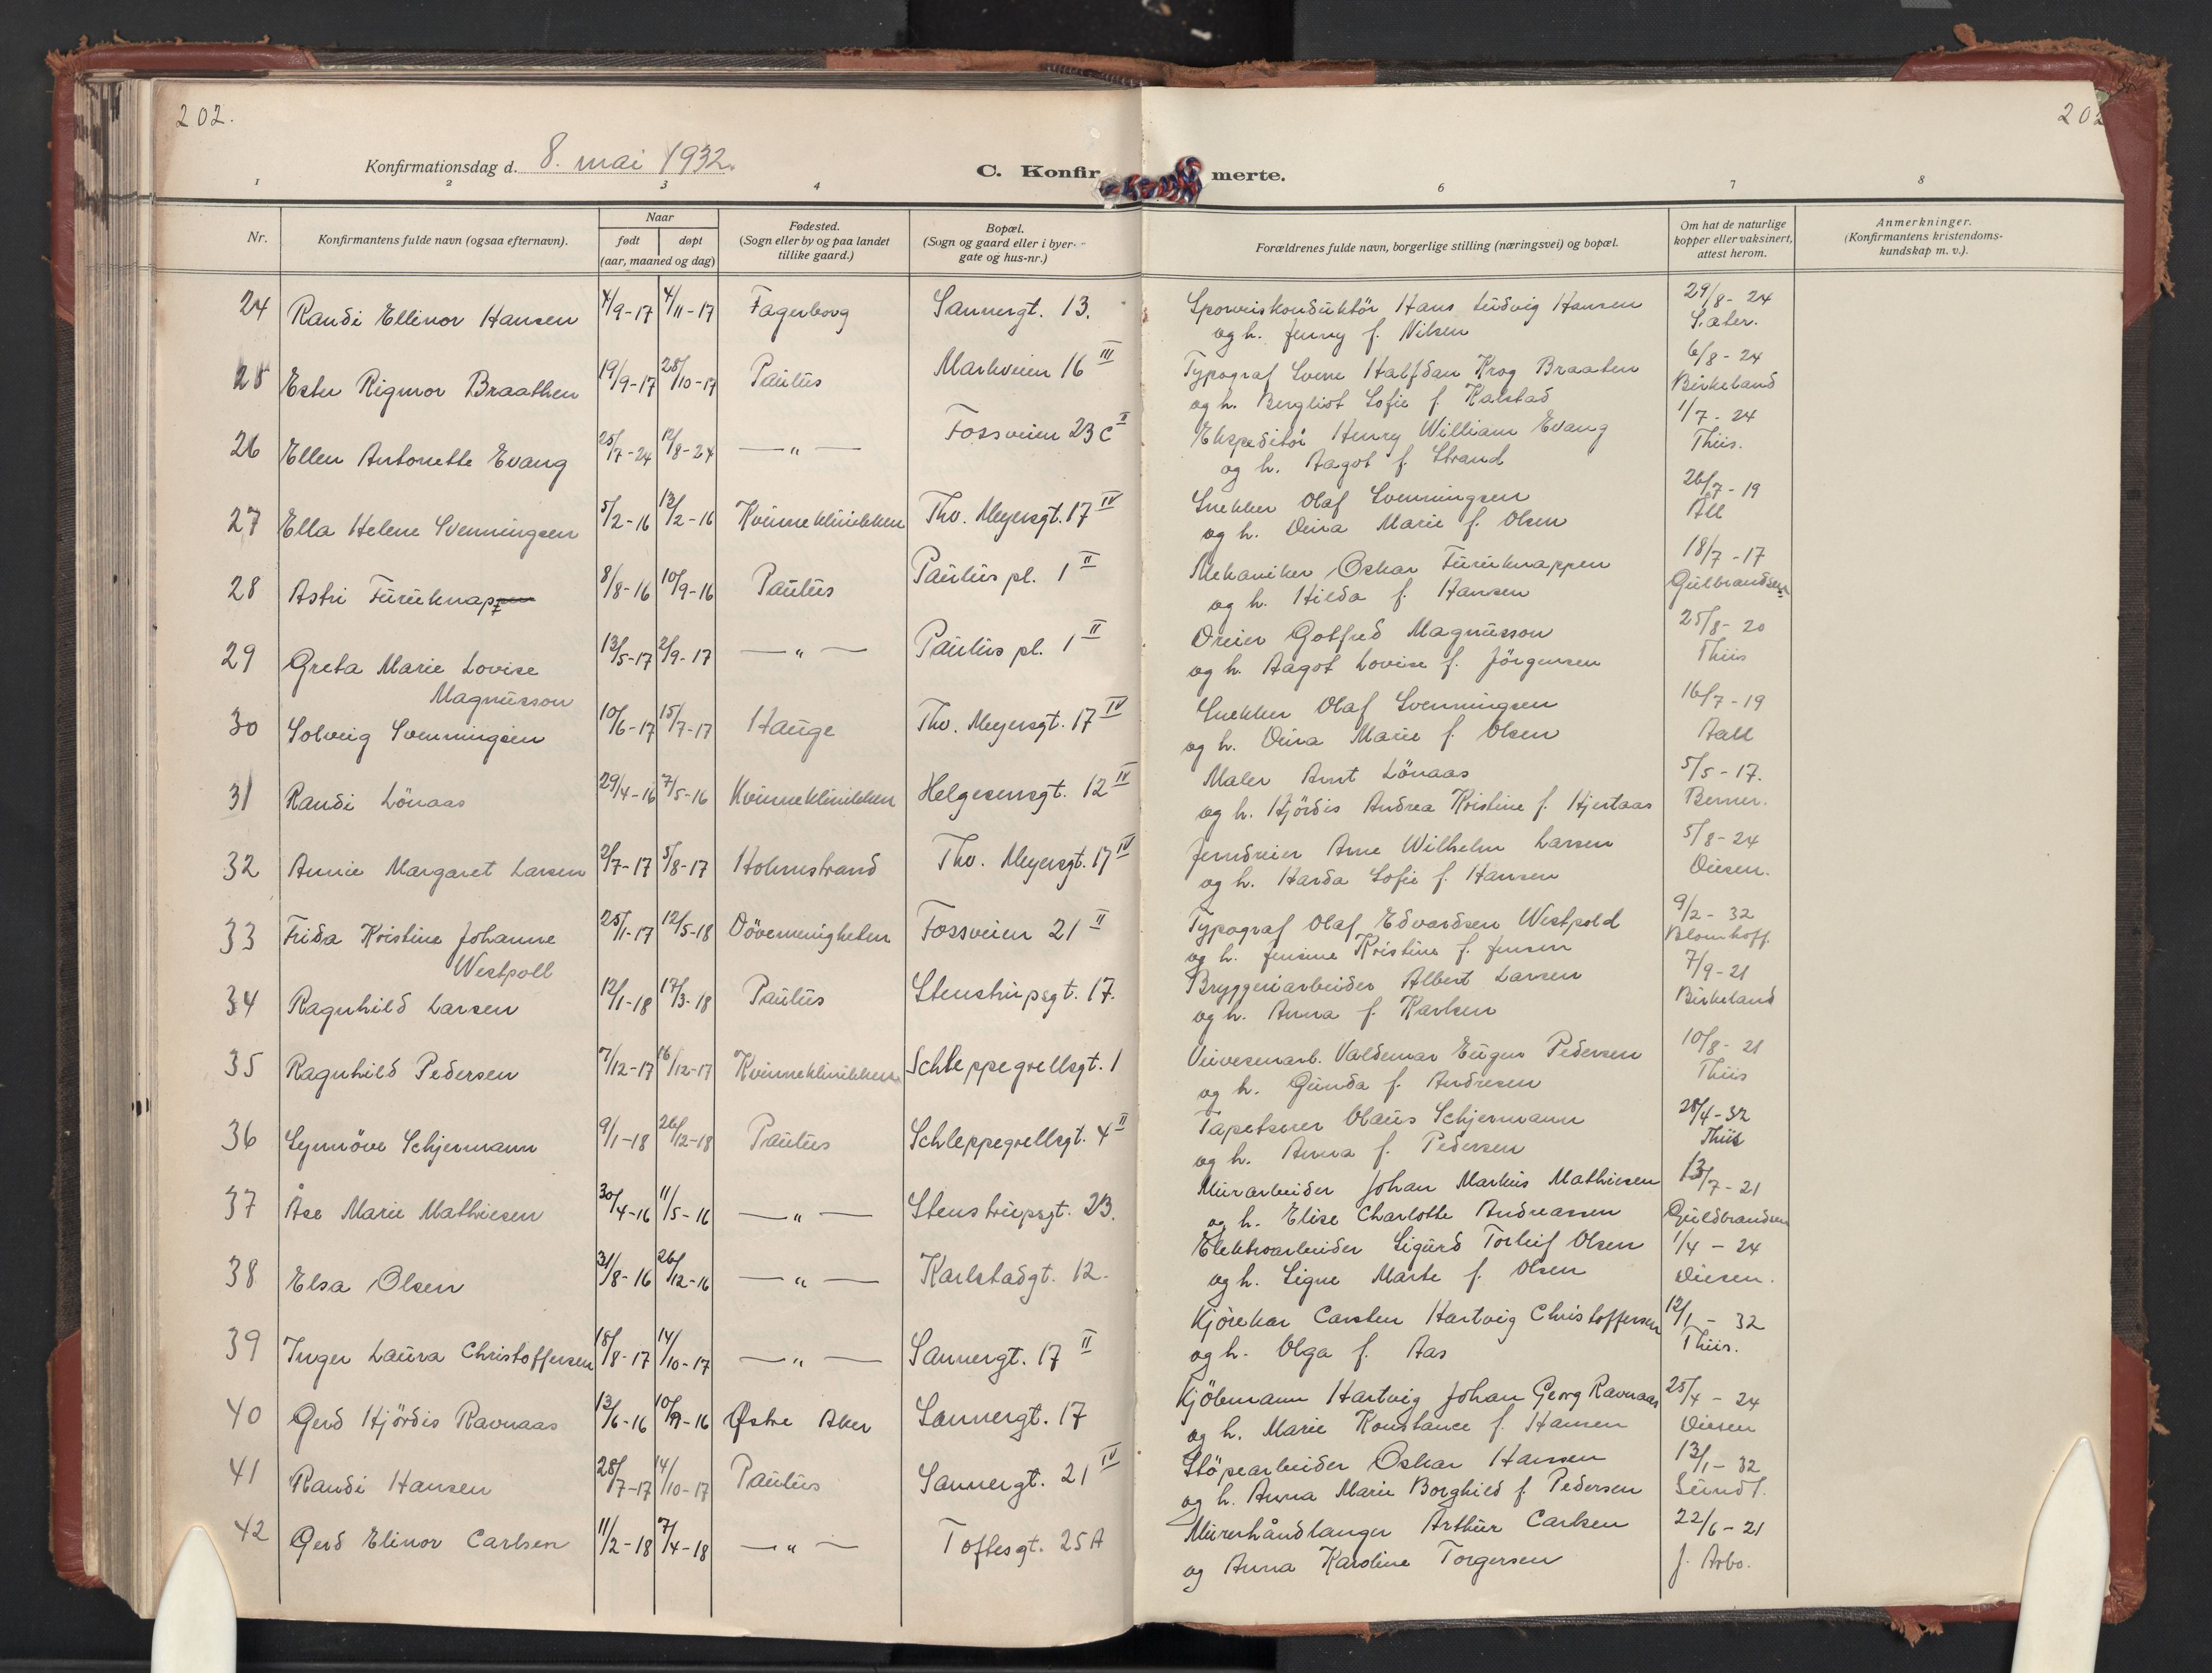 202.
202
Konfirmationsdag d. 8. mai 1932.
C. Konfirmerte.
1 2 3 4 6 7 8
Nr.
Konfirmantens fulde navn (ogsaa efternavn).
Naar
født døpt
(aar, maaned og dag)
Fødested.
(Sogn eller by og paa landet
tillike gaard.)
Bopæl.
(Sogn og gaard eller i byer
gate og hus-nr.)
Forældrenes fulde navn, borgerlige stilling (næringsvei) og bopæl.
Om hat de naturlige
kopper eller vaksinert,
attest herom.
Anmerkninger.
(Konfirmantens kristendoms-
kundskap m. v.).
24 Randi Ellinor Hansen 4/9-17 4/11-17 Fagerborg Sannergt. 13. Sporveiskonduktör Hans Ludvig Hansen 29/8-24
og h. Jenny f. Nilsen Sæter.
25 Ester Rigmor Braathen 19/9-17 28/10-17 Paulus Markveien 16 III Typograf Sverre Halfdan Krog Braaten 6/8-24
og h. Bergliot Sofie f. Kalstad Birkeland
26 Ellen Antonette Evang 25/7-24 12/8-24 —„— Fossveien 23 C II Ekspeditör Henry William Evang 1/7-24
og h. Aagot f. Strand Thiis.
27 Ella Helene Svenningsen 5/2-16 13/2-16 Kvinneklinikken Thv. Meyersgt. 17 IV Snekker Olaf Svenningsen 26/7-19
og h. Dina Marie f. Olsen All
28 Astri Furuknappen 8/8-16 10/9-16 Paulus Paulus pl. 1 II Mekaniker Oskar Furuknappen 18/7-17
og h. Hilda f. Hansen Gulbrandsen
29 Greta Marie Lovise 13/5-17 2/9-17 —„— Paulus pl. 1 II Dreier Gotfred Magnusson 25/8-20
Magnusson og h. Aagot Lovise f. Jörgensen Thiis
30 Solveig Svenningsen 10/6-17 15/7-17 Hauge Thv. Meyersgt. 17 IV Snekker Olaf Svenningsen 16/7-19
og h. Dina Marie f. Olsen Aall
31 Randi Lönaas 29/4-16 7/5-16 Kvinneklinikken Helgesensgt. 12 IV Maler Arnt Lönaas 5/5-17.
og h. Hjördis Andrea Kristine f. Hjertaas Berner.
32 Annie Margaret Larsen 2/7-17 5/8-17 Holmestrand Thv. Meyersgt. 17 IV Jerndreier Arne Wilhelm Larsen 5/8-24
og h. Harda Sofie f. Hansen Diesen.
33 Frida Kristine Johanne 25/1-17 12/5-18 Dövemenigheten Fossveien 21 II Typograf Olaf Edvardsen Westpold 9/2-32
Westpoll og h. Jensine Kristine f. Jensen Blomhoff.
34 Ragnhild Larsen 12/1-18 17/3-18 Paulus Stenstrupsgt. 17. Bryggeriarbeider Albert Larsen 7/9-21
og h. Anna f. Karlsen Birkeland
35 Ragnhild Pedersen 7/12-17 16/12-17 Kvinneklinikken Schleppegrellsgt. 1 Veivesenarb. Valdemar Eugen Pedersen 10/8-21
og h. Gunda f. Andresen Thiis
36 Synnöve Schjermann 9/1-18 26/12-18 Paulus Schleppegrellsgt. 4 II Tapetserer Olaus Schjermann 28/4-32
og h. Anna f. Pedersen Thiis
37 Åse Marie Mathiesen 30/4-16 11/5-16 —„— Stenstrupsgt. 23. Murarbeider Johan Markus Mathiesen 13/7-21
og h. Elise Charlotte Andreassen Guldbrandsen
38 Elsa Olsen 31/8-16 26/12-16 —„— Karlstadgt. 12. Elektroarbeider Sigurd Torleif Olsen 1/4-24
og h. Signe Marte f. Olsen Diesen.
39 Inger Laura Christoffersen 18/8-17 14/10-17 —„— Sannergt. 17 II Kjörekar Carsten Hartvig Christoffersen 12/1-32
og h. Olga f. Aas Thiis.
40 Gerd Hjördis Ravnaas 13/6-16 10/9-16 Østre Aker Sannergt. 17 Kjöbmann Hartvig Johan Georg Ravnaas 25/4-24
og h. Marie Konstance f. Hansen Diesen
41 Randi Hansen 28/7-17 14/10-17 Paulus Sannergt. 21 IV Stöpearbeider Oskar Hansen 13/1-32
og h. Anna Marie Borghild f. Pedersen Sundt.
42 Gerd Elinor Carlsen 11/2-18 7/4-18 —„— Toftesgt. 25 A Murerhåndlanger Arthur Carlsen 22/6-21
og Anna Karoline Torgersen J. Arbo.